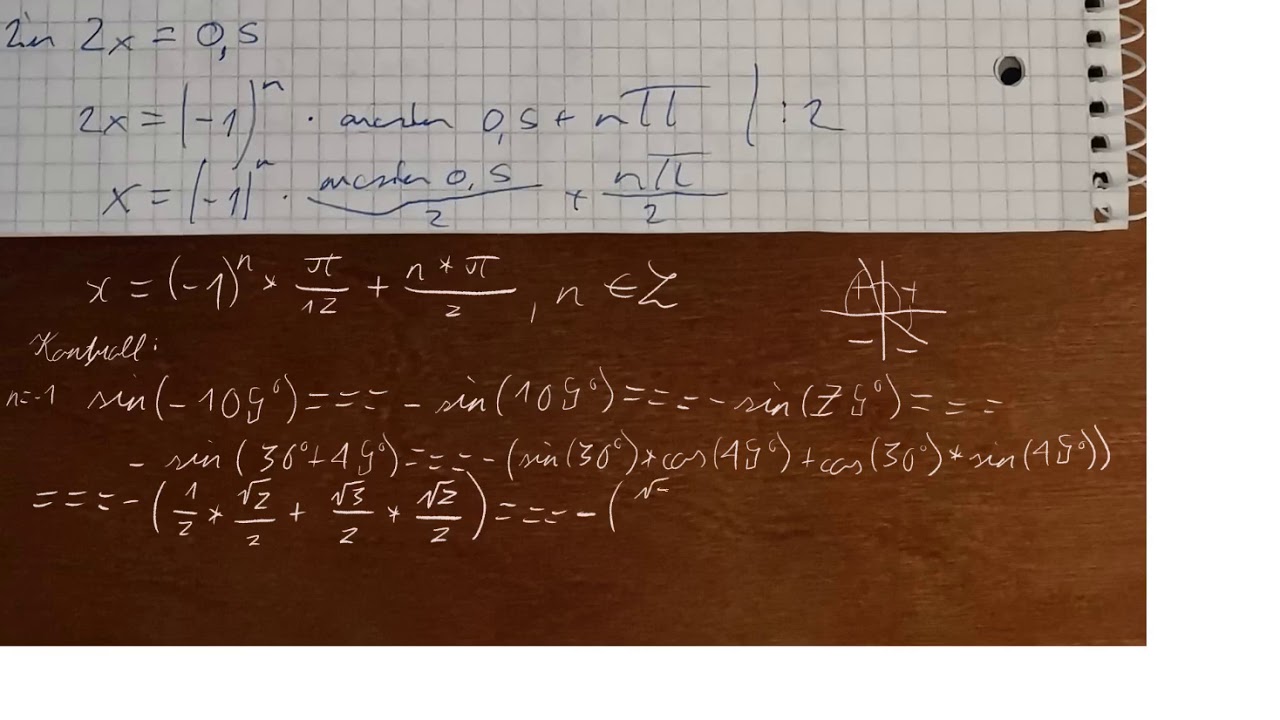 sin 2x = 0,5
2x = (-1)^n · arcsin 0,5 + nπ | :2
x = (-1)^n · arcsin 0,5 / 2 + nπ / 2
x = (-1)^n * π/12 + n*π/2, n ∈ Z
Kontroll:
n=-1 sin(-105°) === - sin(105°) === - sin(75°) ===
- sin(30°+45°) === -(sin(30°)*cos(45°)+cos(30°)*sin(45°))
=== -(1/2 * √2/2 + √3/2 * √2/2) === -(√